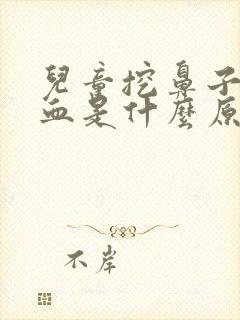 兒童挖鼻子
血是什麼原
不岸